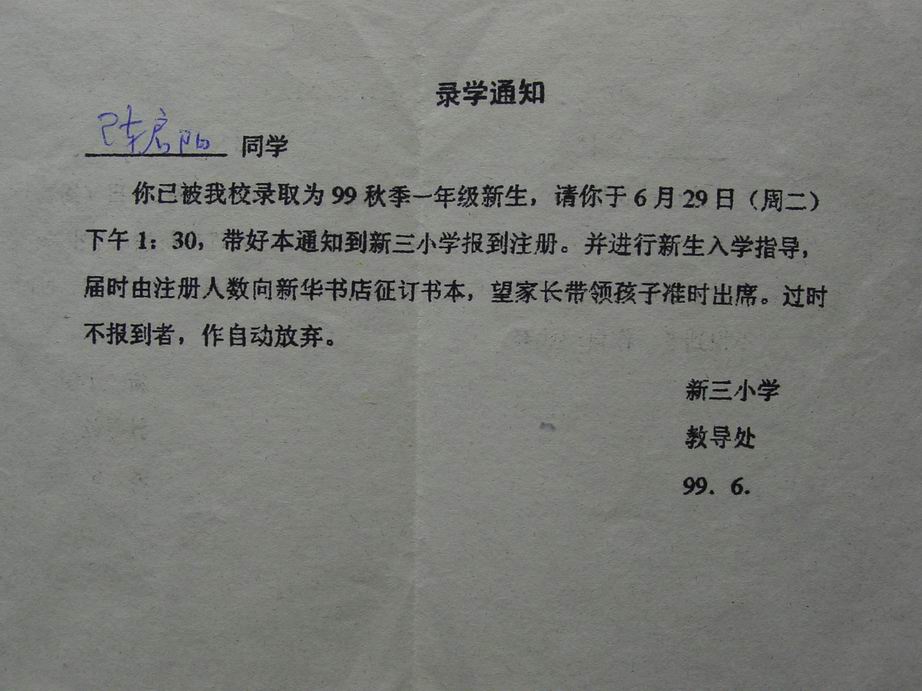 录学通知
陈启阳 同学
你已被我校录取为 99 秋季一年级新生，请你于 6 月 29 日（周二）
下午 1：30，带好本通知到新三小学报到注册。并进行新生入学指导，
届时由注册人数向新华书店征订书本，望家长带领孩子准时出席。过时
不报到者，作自动放弃。
新三小学
教导处
99．6．